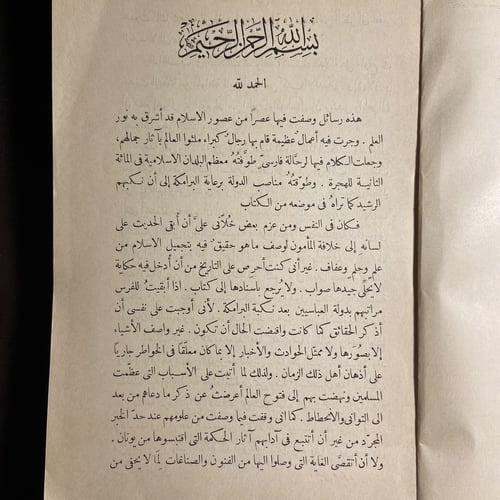 بسم الله الرحمن الرحيم
الحمد لله
هذه رسائل وصفت فيها عصراً من عصور الاسلام قد أشرق به نور
العلم . وجرت فيه أعمال عظيمة قام بها رجال كبراء ملئوا العالم بآثار جمالهم ،
وجعلت الكلام فيها لرحالة فارسىّ طوَّفتُهُ معظم البلدان الاسلامية فى المائة
الثانية للهجرة . وطوّقتهُ مناصب الدولة برعاية البرامكة إلى أن نكبهم
الرشيد كما تراهُ فى موضعه من الكتاب
فكان فى النفس ومن عزم بعض خُلّانى علىَّ أن أُبقى الحديث على
لسانه إلى خلافة المأمون لوصف ما هو حقيقٌ فيه بتجميل الاسلام من
علم وحلم وعفاف . غير أنى كنت أحرص على التاريخ من أن أُدخل فيه حكاية
لا يُحلّى جيدها صواب . ولا يُرجع باسنادها إلى كتاب . اذا أبقيتُ للفرس
مراتبهم بدولة العباسيين بعد نكبة البرامكة . لأنى أوجبت على نفسى أن
أذكر الحقائق كما كانت واقتضت الحال أن تكون . غير واصف الأشياء
إلا بصُوَرها ولا ممثل الحوادث والأخبار إلا بما كان معلقاً فى الخواطر جارياً
على أذهان أهل ذلك الزمان . ولذلك لما أتيت على الأسباب التى عظّمت
المسلمين ونهضت بهم إلى فتوح العالم أعرضتُ عن ذكر ما دعاهم من بعد
الى التوانى والانحطاط . كما انى وقفت فيما وصفت من علومهم عند حدّ الخبر
المجرّد من غير أن أتتبع فى آدابهم آثار الحكمة التى اقتبسوها من يونان .
ولا أن أتقصَّى الغاية التى وصلوا اليها من الفنون والصناعات لِما لا يخفى من